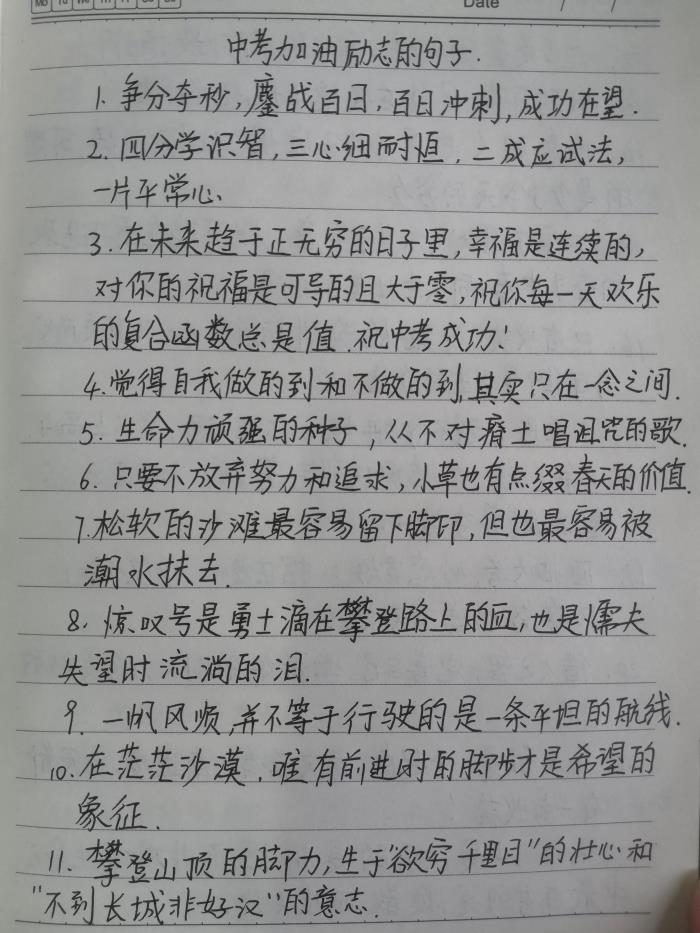 Mo Tu We Th Fr Sa Su
Date / /
中考加油励志的句子.
1. 争分夺秒，鏖战百日，百日冲刺，成功在望.
2. 四分学识智，三心细而恒，二成应试法，
一片平常心、
3. 在未来趋于正无穷的日子里，幸福是连续的，
对你的祝福是可导的且大于零，祝你每一天欢乐
的复合函数总是值.祝中考成功！
4.觉得自我做的到和不做的到，其实只在一念之间.
5. 生命力顽强的种子，从不对瘠土唱诅咒的歌.
6. 只要不放弃努力和追求，小草也有点缀春天的价值.
7.松软的沙滩最容易留下脚印，但也最容易被
潮水抹去.
8. 惊叹号是勇士滴在攀登路上的血，也是懦夫
失望时流淌的泪.
9. 一帆风顺，并不等于行驶的是一条平坦的航线.
10.在茫茫沙漠，唯有前进时的脚步才是希望的
象征.
11. 攀登山顶的脚力，生于“欲穷千里目”的壮心和
“不到长城非好汉”的意志.